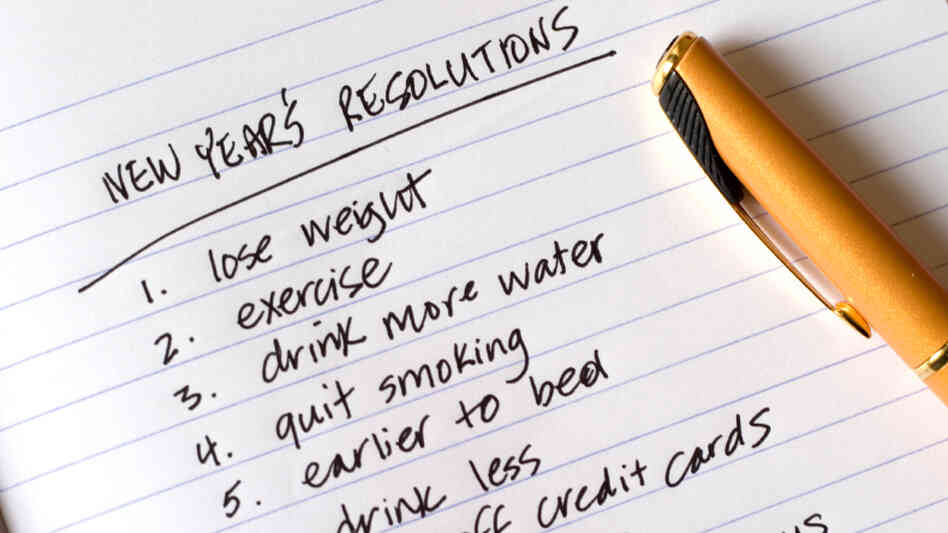 NEW YEAR'S RESOLUTIONS
1. lose weight
2. exercise
3. drink more water
4. quit smoking
5. earlier to bed
drink less
credit cards